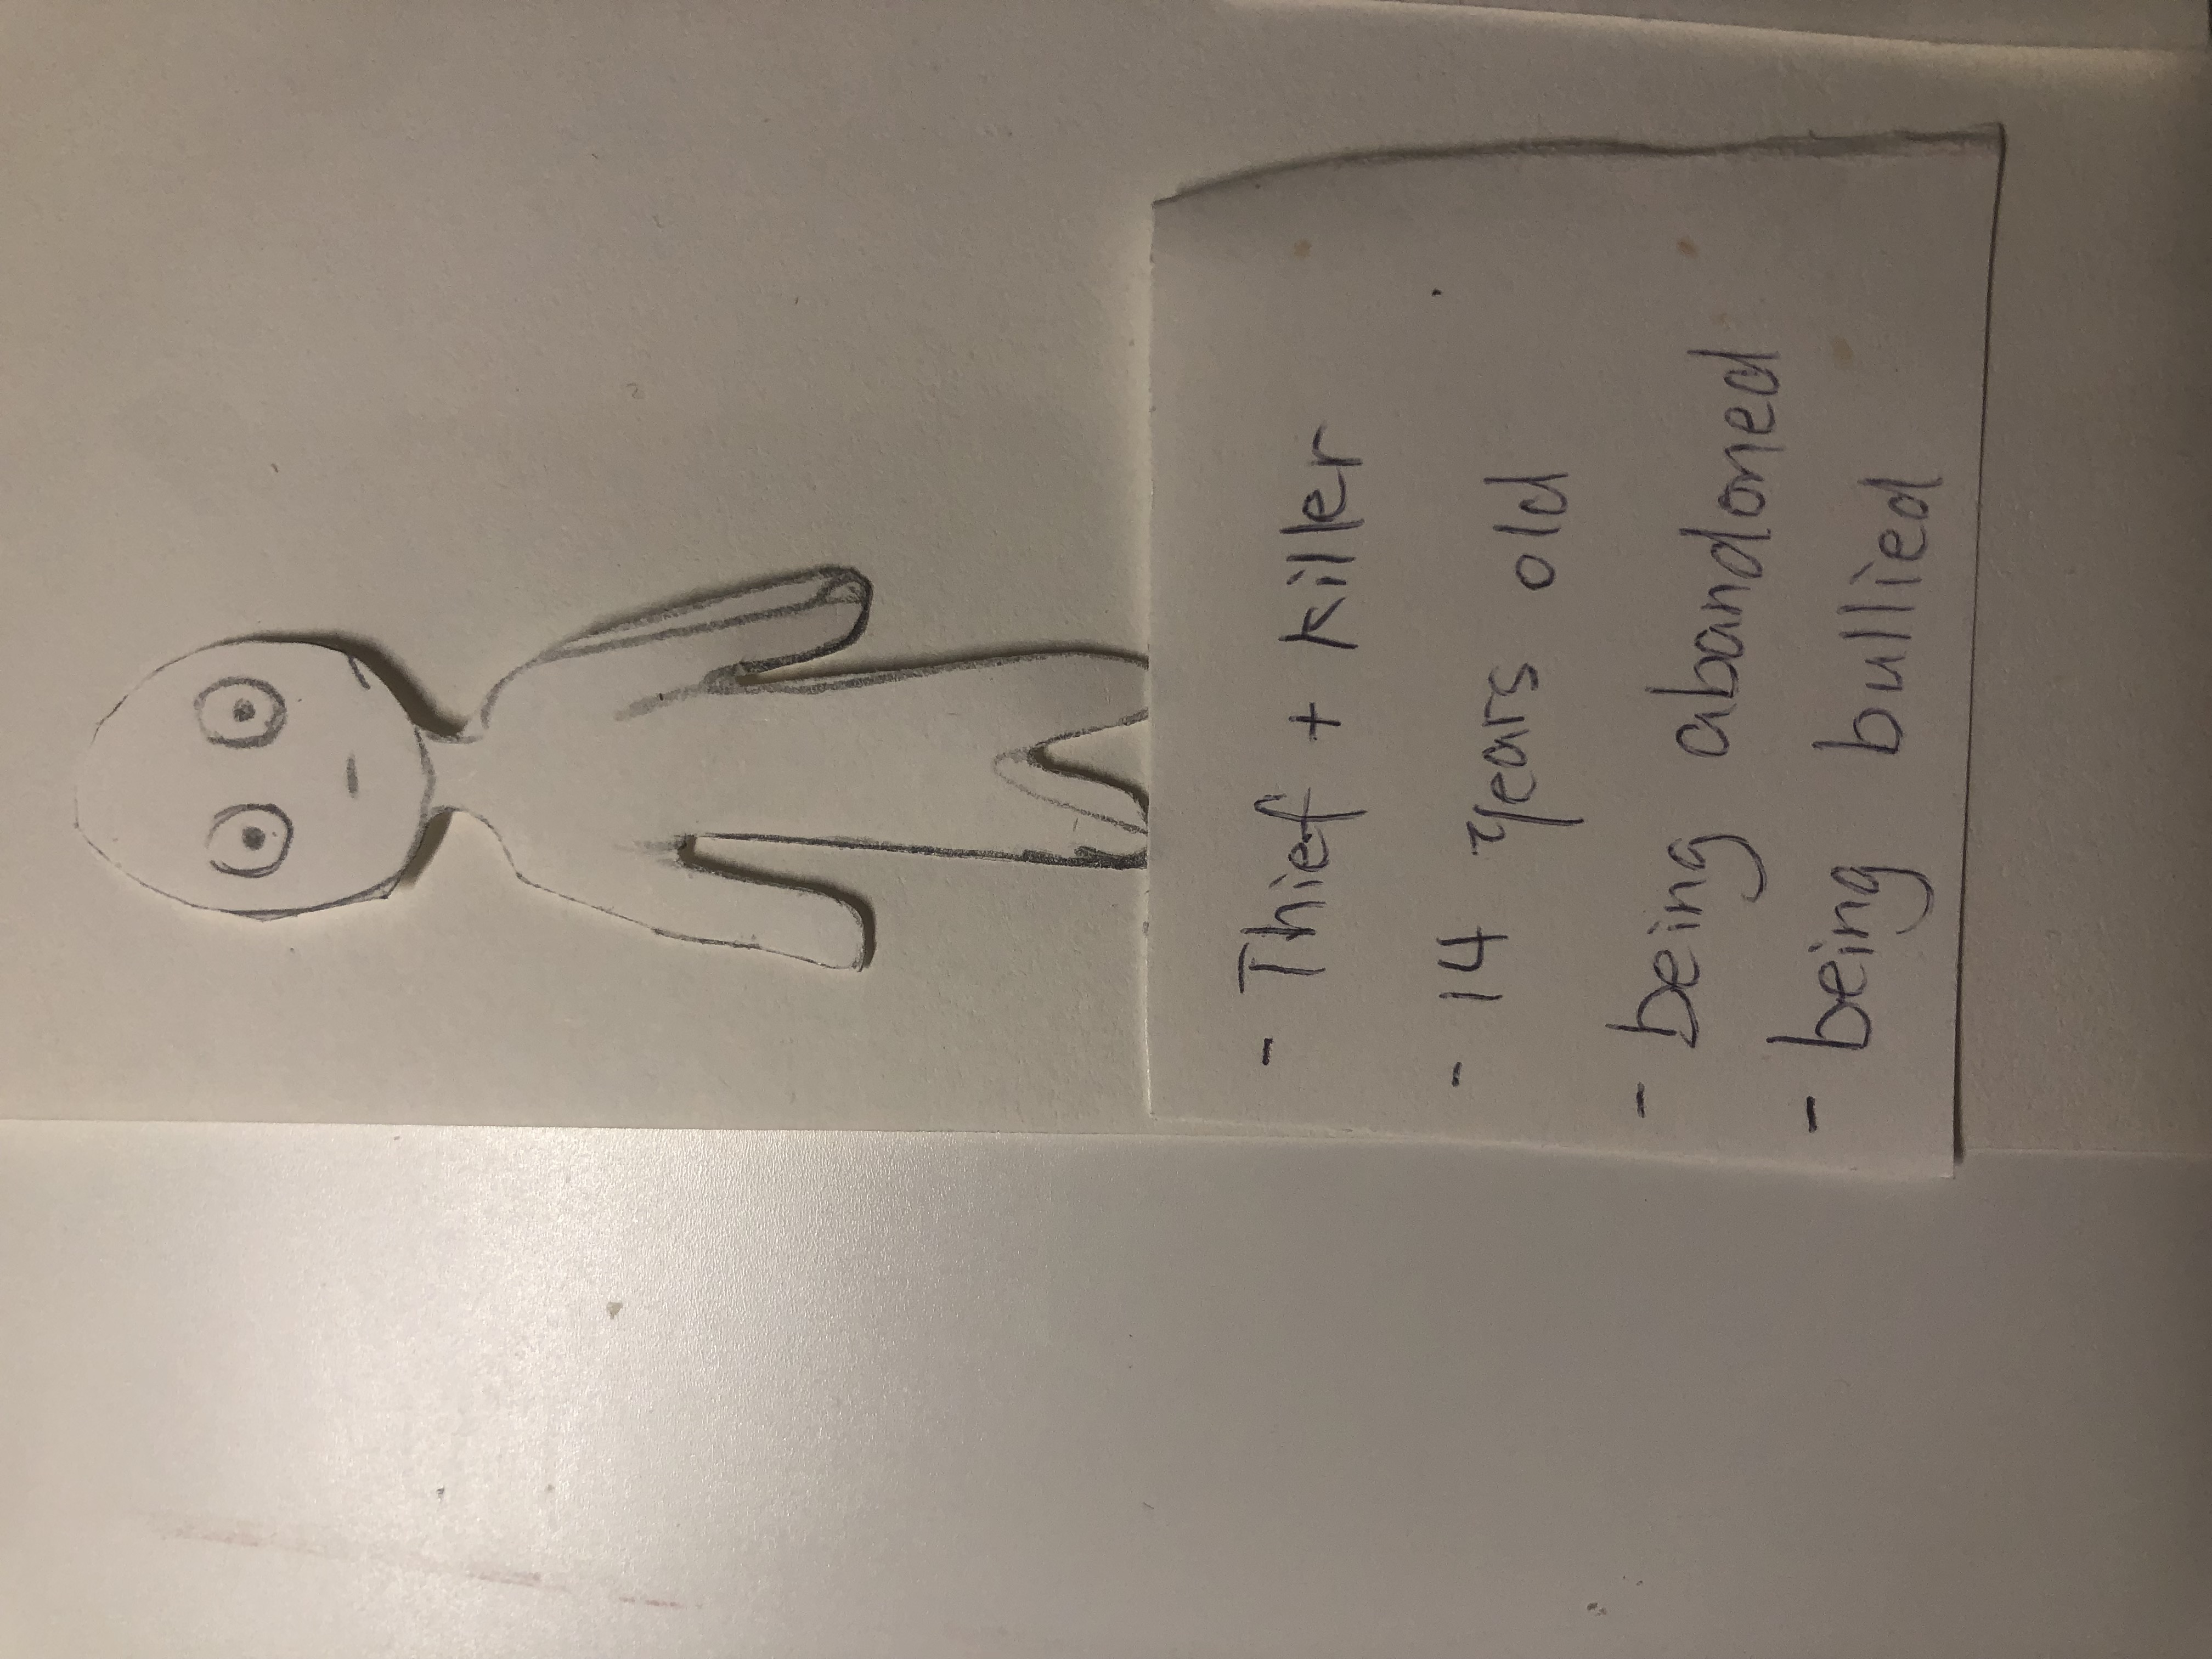 - Thief + killer
- 14 years old
- being abandoned
- being bullied